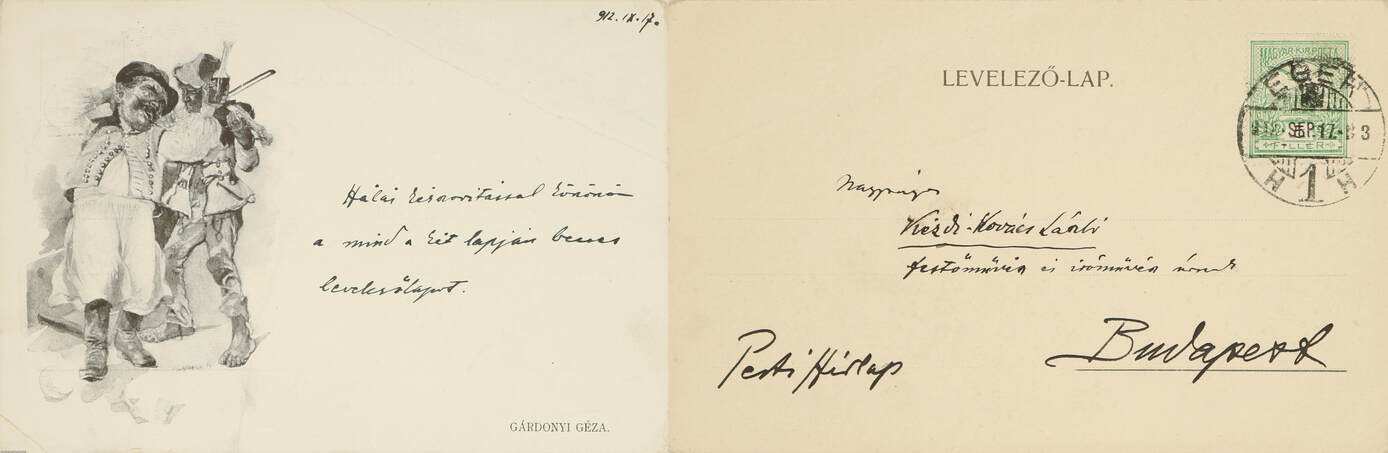 912. IX. 17.
Hálás kézszorítással köszönöm
a mind a két lapján becses
levelezőlapot.
GÁRDONYI GÉZA.
LEVELEZŐ-LAP.
MAGYAR·KIR·POSTA
FILLÉR
EGER
912 SEP. 17
H 1 H
Nagyságos
Kézdi-Kovács László
festőművész és iróművész úrnak
Pesti Hírlap
Budapest